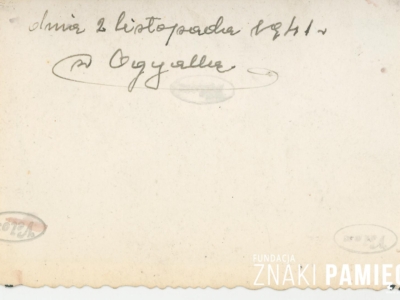 dnia 2 listopada 1941 r
w Ogyalla
FUNDACJA
ZNAKI PAMIĘC